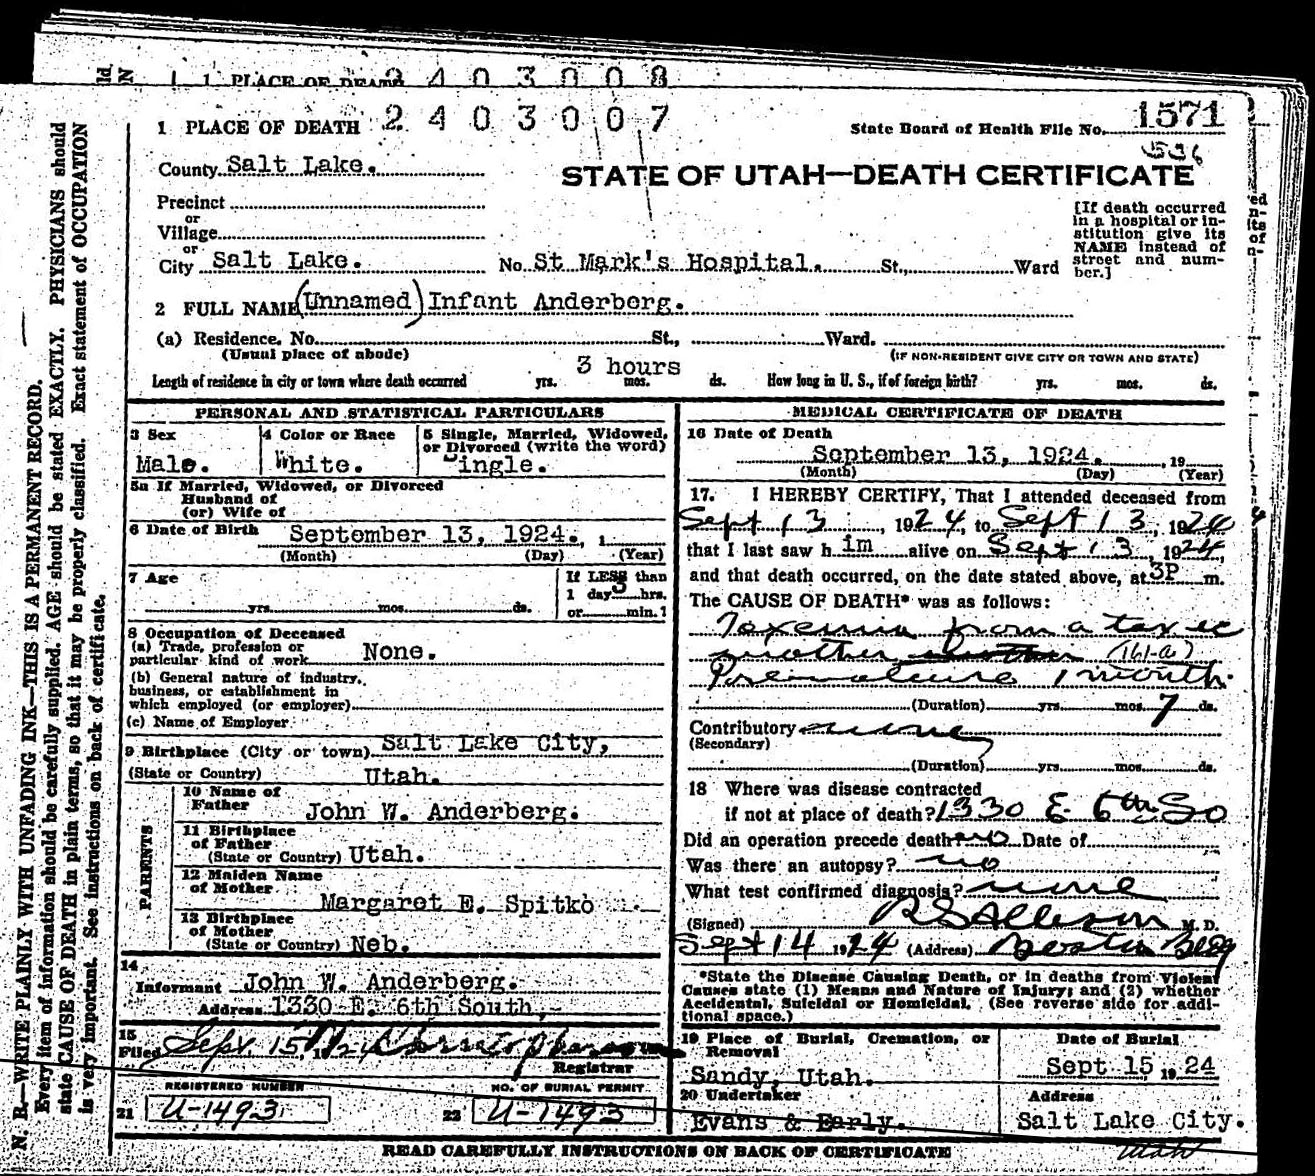 1 PLACE OF DEATH 2403008
2403007
1 PLACE OF DEATH
State Board of Health File No. 1571
536
County Salt Lake.
STATE OF UTAH—DEATH CERTIFICATE
Precinct
or
Village
or
City Salt Lake. No. St Mark's Hospital. St., Ward
[If death occurred in a hospital or institution give its NAME instead of street and number.]
2 FULL NAME (Unnamed) Infant Anderberg.
(a) Residence. No. St., Ward.
(Usual place of abode) (IF NON-RESIDENT GIVE CITY OR TOWN AND STATE)
3 hours
Length of residence in city or town where death occurred yrs. mos. ds. How long in U. S., if of foreign birth? yrs. mos. ds.
PERSONAL AND STATISTICAL PARTICULARS
3 Sex
Male.
4 Color or Race
White.
5 Single, Married, Widowed, or Divorced (write the word)
Single.
5a If Married, Widowed, or Divorced
Husband of
(or) Wife of
6 Date of Birth September 13, 1924. 1
(Month) (Day) (Year)
7 Age
yrs. mos. ds.
If LESS than
1 day 3 hrs.
or min.?
8 Occupation of Deceased
(a) Trade, profession or
particular kind of work None.
(b) General nature of industry,
business, or establishment in
which employed (or employer)
(c) Name of Employer
9 Birthplace (City or town) Salt Lake City,
(State or Country) Utah.
PARENTS
10 Name of
Father John W. Anderberg.
11 Birthplace
of Father
(State or Country) Utah.
12 Maiden Name
of Mother Margaret E. Spitko
13 Birthplace
of Mother
(State or Country) Neb.
14
Informant John W. Anderberg.
Address 1330 E. 6th South,-
15
Filed Sept. 15
Registrar
REGISTERED NUMBER
21 U-1493
NO. OF BURIAL PERMIT
22 U-1493
MEDICAL CERTIFICATE OF DEATH
16 Date of Death
September 13, 1924. , 19
(Month) (Day) (Year)
17. I HEREBY CERTIFY, That I attended deceased from
Sept 13, 1924, to Sept 13, 1924
that I last saw h im alive on Sept 13, 1924,
and that death occurred, on the date stated above, at 3P m.
The CAUSE OF DEATH* was as follows:
Toxemia from a toxic
mother (161-a)
Premature 1 month.
(Duration) yrs. mos. 7 ds.
Contributory none
(Secondary)
(Duration) yrs. mos. ds.
18 Where was disease contracted
if not at place of death? 1330 E 6th So
Did an operation precede death? no Date of
Was there an autopsy? no
What test confirmed diagnosis? none
(Signed) R S Allison M. D.
Sept 14 1924 (Address) Boston Bldg
*State the Disease Causing Death, or in deaths from Violent
Causes state (1) Means and Nature of Injury; and (2) whether
Accidental, Suicidal or Homicidal. (See reverse side for addi-
tional space.)
19 Place of Burial, Cremation, or
Removal
Sandy, Utah.
Date of Burial
Sept 15 1924
20 Undertaker
Evans & Early.
Address
Salt Lake City.
Utah
READ CAREFULLY INSTRUCTIONS ON BACK OF CERTIFICATE
N. B.—WRITE PLAINLY WITH UNFADING INK—THIS IS A PERMANENT RECORD.
Every item of information should be carefully supplied. AGE should be stated EXACTLY. PHYSICIANS should
state CAUSE OF DEATH in plain terms, so that it may be properly classified. Exact statement of OCCUPATION
is very important. See instructions on back of certificate.